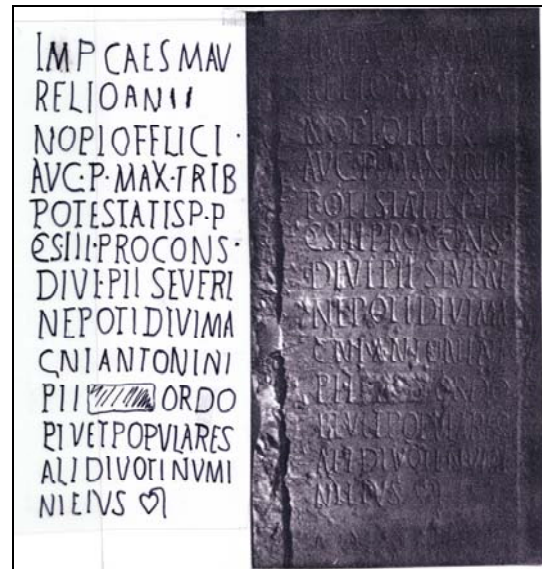 IMP CAES MAV
RELIO ANII
NOPIOFELICI ·
AVC·P·MAX·TRIB
POTESTATISP·P
CSIII·PROCONS·
DIVI·PII SEVERI
NEPOTI DIVIMA
CNIANTONINI
PII ORDO
PIVETPOPVLARES
ALIDIVOTINVMI
NIEIVS